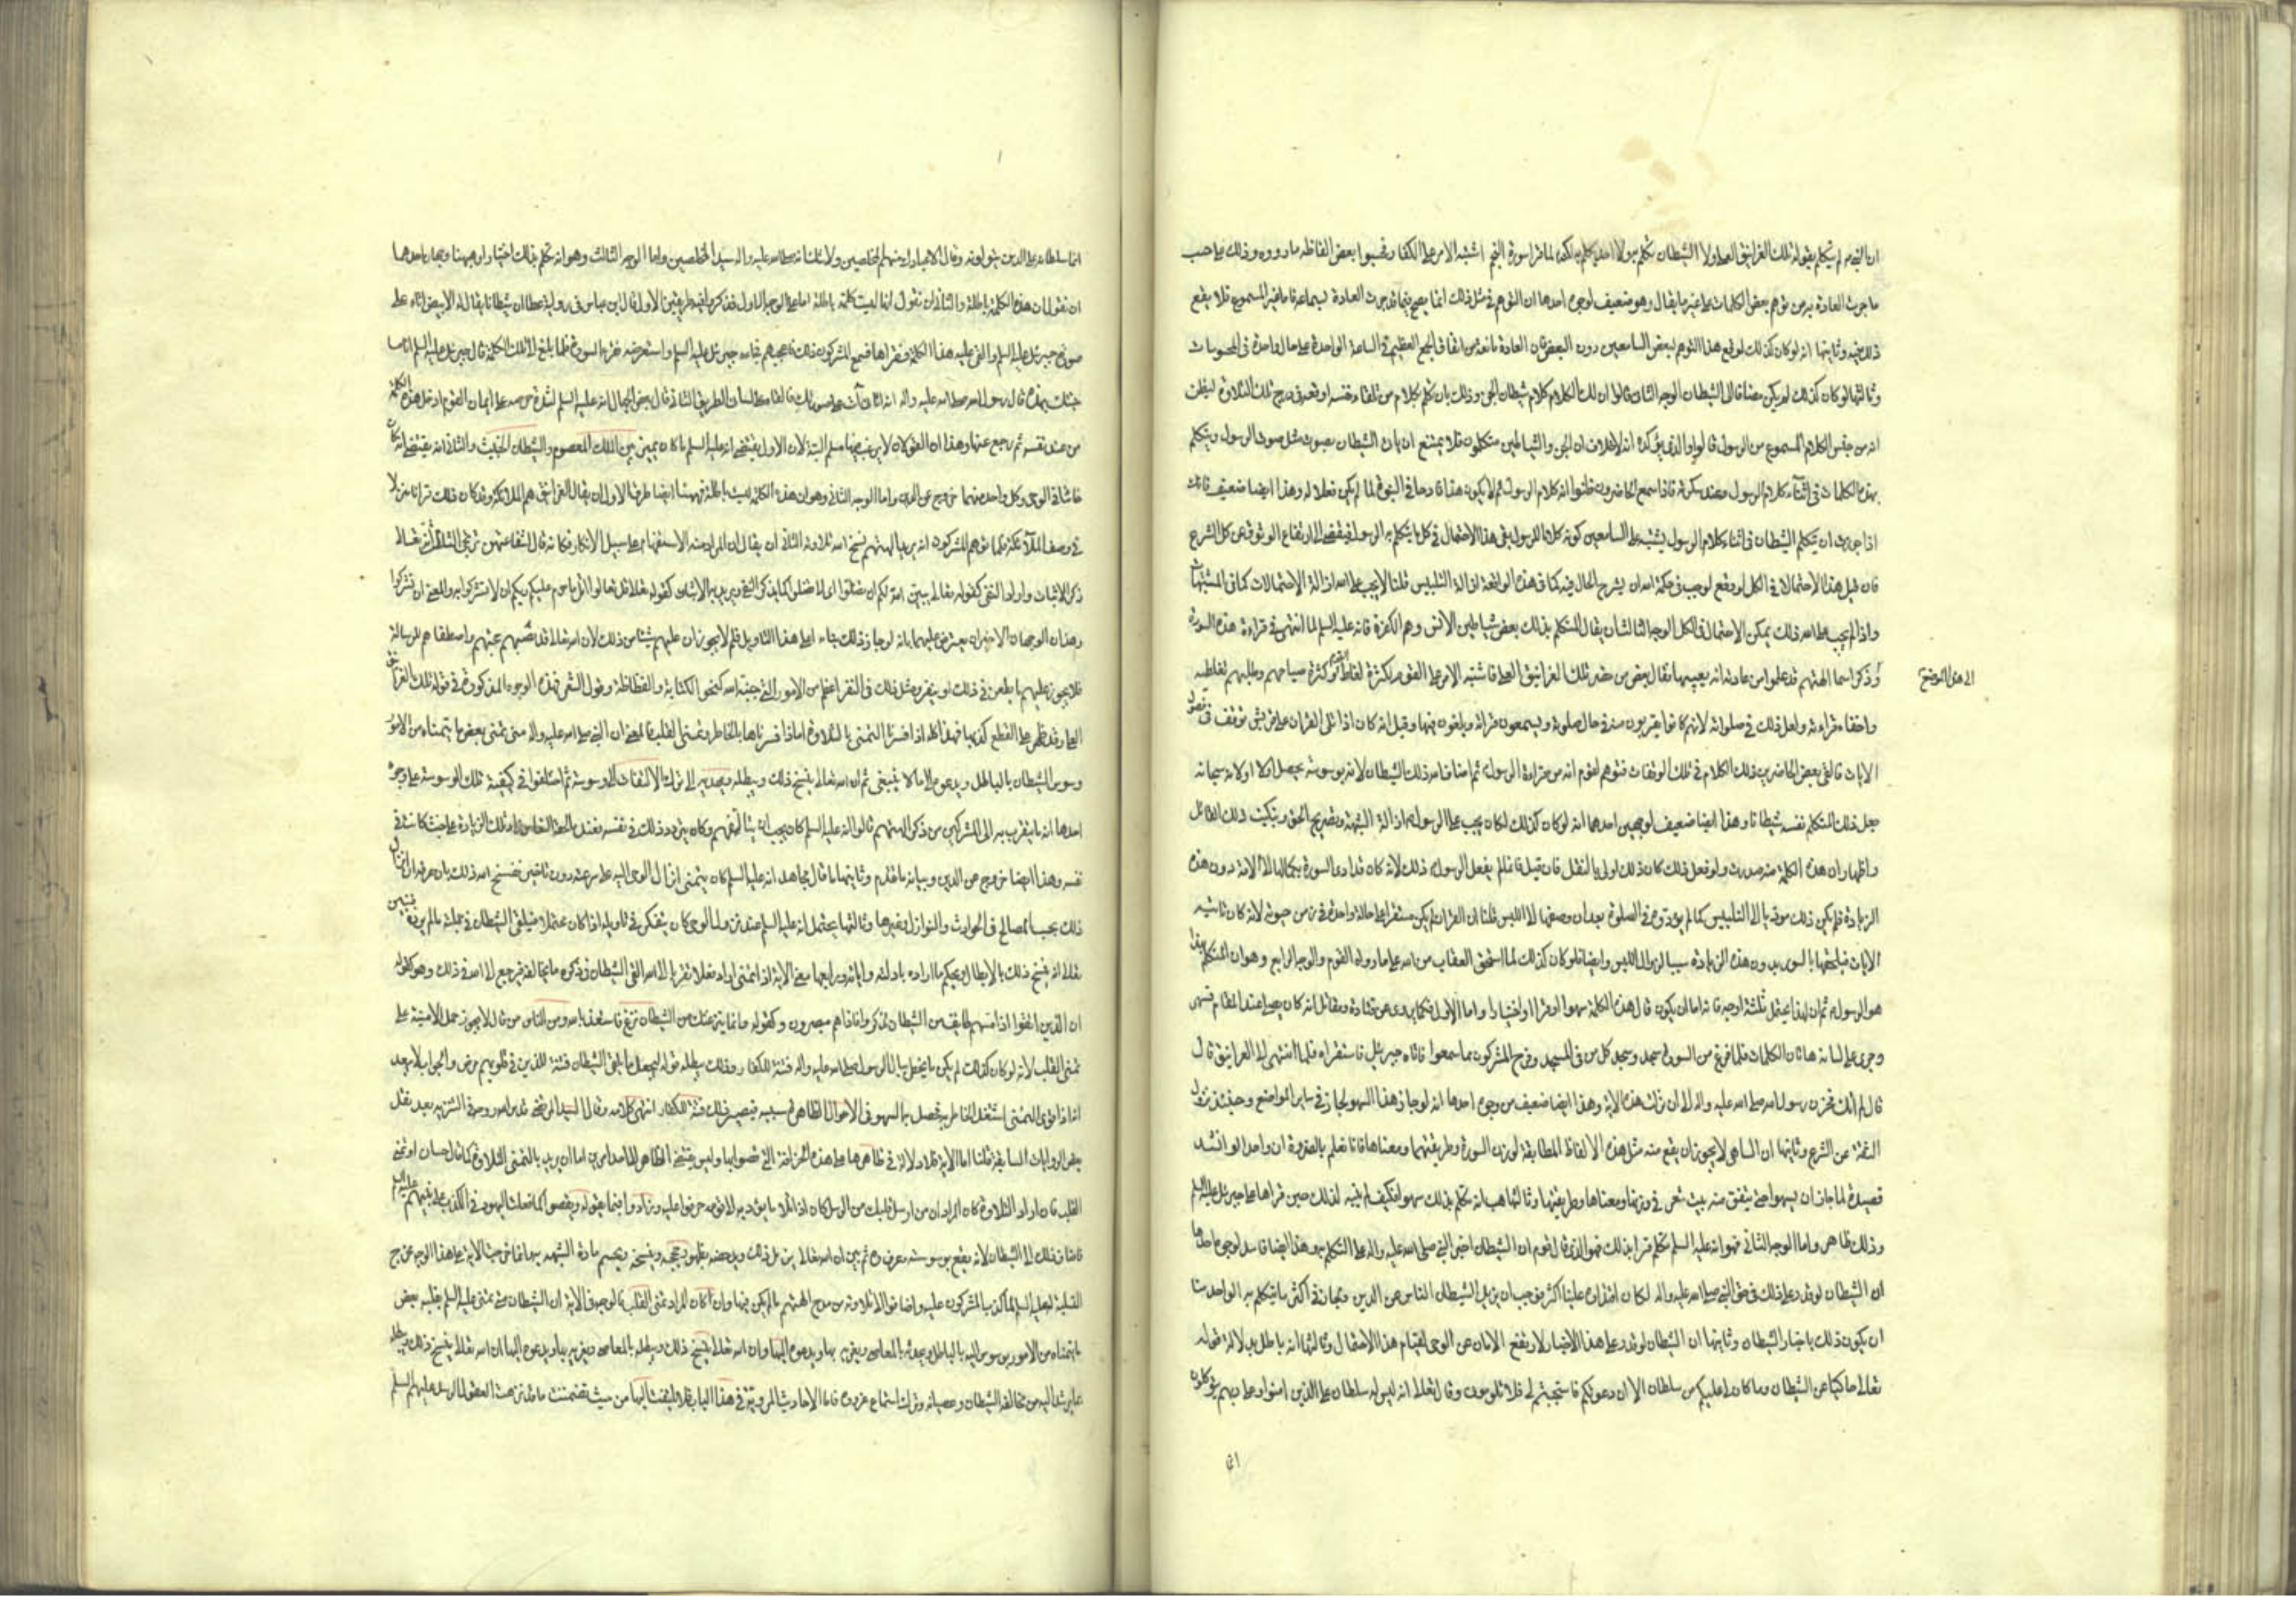 ان النبي ص لم يتكلم بقوله تلك الغرانيق العلى ولا الشيطان تكلم به ولا احد تكلم به لكنه لما قرا سورة النجم اشتبه الامر على الكفار فحسبوا بعض الفاظه ما رووه وذلك على حسب
ما جرت العادة به من توهم بعض الكلمات على غير ما يقال وهو ضعيف لوجوه احدها ان التوهم في مثل ذلك انما يصح فيما قد جرت العادة بسماعه فاما غير المسموع فلا يقع
ذلك فيه وثانيها انه لو كان كذلك لوقع هذا التوهم لبعض السامعين دون البعض فان العادة مانعة من اتفاق الجمع العظيم في الساعة الواحدة على حال واحدة في المحسوسات
وثالثها لو كان كذلك لم يكن مضافا الى الشيطان الوجه الثاني قالوا ان ذلك الكلام كلام شيطان الجن وذلك بان تكلم بكلام من تلقاء نفسه اوقعه في درج تلك التلاوة ليظن
انه من جنس الكلام المسموع من الرسول قالوا والذي يؤكده انه لا خلاف ان الجن والشياطين متكلمون فلا يمتنع ان ياتي الشيطان بصوت مثل صوت الرسول ويتكلم
بهذه الكلمات في اثناء كلام الرسول وعند سكوته فاذا سمع الحاضرون ظنوا انه كلام الرسول ثم لا يكون هذا قادحا في النبوة لما لم يكن فعلا له وهذا ايضا ضعيف فانك
اذا جوزت ان يتكلم الشيطان في اثناء كلام الرسول بما يشتبه على السامعين كونه كلاما للرسول بقي هذا الاحتمال في كل ما يتكلم به الرسول فيفضي الى ارتفاع الوثوق عن كل الشرع
فان قيل هذا الاحتمال في الكل لو وقع لوجب في حكمة الله ان يشرح الحال فيه كما في هذه الواقعة ازالة للتلبيس قلنا لا يجب على الله ازالة الاحتمالات كما في المتشابهات
واذا لم يجب على الله ذلك يمكن الاحتمال في الكل الوجه الثالث ان يقال المتكلم بذلك بعض شياطين الانس وهم الكفرة فانه عليه السلم لما انتهى في قراءة هذه السورة
وذكر اسما الهتهم قد علموا من عادته انه يعيبها فقال بعض من حضر تلك الغرانيق العلى فاشتبه الامر على القوم لكثرة لغاط القوم وكثرة صياحهم وطلبهم تغليطه
الى هذا الموضع
واخفاء قراءته ولعل ذلك في صلواته لانهم كانوا يقربون منه في حال صلوته ويسمعون قراءته ويلغون فيها وقيل انه كان اذا تلى القران على قريش توقف في فصول
الايات فالقى بعض الحاضرين ذلك الكلام في تلك الوقفات فتوهم القوم انه من قراءة الرسول ثم اضاف الله ذلك الى الشيطان لانه بوسوسته يحصل اولا او لانه سبحانه
جعل ذلك المتكلم نفسه شيطانا وهذا ايضا ضعيف لوجهين احدهما انه لو كان كذلك لكان يجب على الرسول ازالة الشبهة وتصريح الحق وتبكيت ذلك القائل
واظهار ان هذه الكلمة منه صدرت ولو فعل ذلك كان ذلك اولى بالنقل فان قيل فانما لم يفعل الرسول ذلك لانه كان قد ادى السورة بكمالها الى الامة دون هذه
الزيادة فلم يكن ذلك موديا الى التلبيس كما لم يؤد سهوه في الصلوة بعد ان وصفها الى اللبس قلنا ان القران لم يكن مستقرا على حالة واحدة في زمن حيوته لانه كان تاتيه
الايات فيلحقها بالسور فلم يكن تادية تلك السورة بدون هذه الزيادة سببا لزوال اللبس وايضا فلو كان كذلك لما استحق العقاب من الله على ما رواه القوم والوجه الرابع وهو ان المتكلم بهذا
هو الرسول ثم ان هذا يحتمل ثلثة اوجه فانه اما ان يكون قال هذه الكلمة سهوا او قسرا او اختيارا واما الاول فكما يروى عن قتادة ومقاتل انه كان يصلي عند المقام فنعس
وجرى على لسانه هاتان الكلمتان فلما فرغ من السورة سجد وسجد كل من في المسجد وفرح المشركون بما سمعوا فاتاه جبرئيل فاستقراه فلما انتهى الى الغرانيق قال
قال لم اتك بهذا فحزن رسول الله صلى الله عليه واله الى ان نزلت هذه الاية وهذا ايضا ضعيف من وجوه احدها انه لو جاز هذا السهو لجاز في ساير المواضع وحينئذ تزول
الثقة عن الشرع وثانيها ان الساهي لا يجوز ان يقع منه مثل هذه الالفاظ المطابقة لوزن السورة وطريقتها ومعناها فانا نعلم بالضرورة ان واحدا لو انشد
قصيدة لما جاز ان يسهو حتى يتفق منه بيت شعر في وزنها ومعناها وطريقتها وثالثها هب انه تكلم بذلك سهوا فكيف لم ينبه لذلك حين قراها على جبرئيل عليه السلم
وذلك ظاهر واما الوجه الثاني فهو انه عليه السلم تكلم قسرا بذلك فهو الذي قال قوم ان الشيطان اجبر النبي صلى الله عليه واله على التكلم به وهذا ايضا فاسد لوجوه احدها
ان الشيطان لو قدر على ذلك في حق النبي صلى الله عليه واله لكان اقتداره علينا اكثر فوجب ان يزيل الشيطان الناس عن الدين ولجاز في اكثر ما يتكلم به الواحد منا
ان يكون ذلك باجبار الشيطان وثانيها ان الشيطان لو قدر على هذا الاجبار لارتفع الامان عن الوحي لقيام هذا الاحتمال وثالثها انه باطل بدلالة قوله
تعالى حاكيا عن الشيطان وما كان لي عليكم من سلطان الا ان دعوتكم فاستجبتم لي فلا تلوموني وقال تعالى انه ليس له سلطان على الذين امنوا وعلى ربهم يتوكلون
انما سلطانه على الذين يتولونه وقال الا عبادك منهم المخلصين ولا شك انه صلى الله عليه واله سيد المخلصين واما الوجه الثالث وهو انه تكلم بذلك اختيارا فههنا وجهان احدهما
ان نقول ان هذه الكلمة باطلة والثاني ان نقول انها ليست كلمة باطلة اما على الوجه الاول فقد ذكروا فيه طريقين الاول قال ابن عباس في رواية عطا ان شيطانا يقال له الابيض اتاه على
صورة جبرئيل عليه السلم والقى عليه هذه الكلمة فقراها فسمع المشركون ذلك فاعجبهم فجاءه جبرئيل عليه السلم واستعرضه فقرا السورة فلما بلغ الى تلك الكلمة قال جبرئيل عليه السلم انا ما
جئتك بهذه قال رسول الله صلى الله عليه واله انه اتاني آت على صورتك فالقاها على لساني الطريق الثاني قال بعض الجهال انه عليه السلم لشدة حرصه على ايمان القوم ادخل هذه الكلمة
من عند نفسه ثم رجع عنها وهذان القولان لا يرغب فيهما مسلم البتة لان الاول يقتضي انه عليه السلم ما كان يميز بين الملك المعصوم والشيطان الخبيث والثاني انه يقتضي انه كان
خائنا في الوحي وكل واحد منهما خروج عن الدين واما الوجه الثاني وهو ان هذه الكلمة ليست باطلة فههنا ايضا طرق الاول ان يقال الغرانيق هم الملائكة وقد كان ذلك قرانا منزلا
في وصف الملائكة فلما توهم المشركون انه يريد الهتهم نسخ الله تلاوته الثاني ان يقال ان المراد منه الاستفهام على سبيل الانكار فكانه قال اشفاعتهن ترتجى الثالث انه تعالى
ذكر الاثبات واراد النفي كقوله تعالى يبين الله لكم ان تضلوا اي لا تضلوا كما يذكر النفي ويريد به الاثبات كقوله تعالى قل تعالوا اتل ما حرم ربكم عليكم ان لا تشركوا به والمعنى ان تشركوا
وهذان الوجهان الاخيران يعترض عليهما بانه لو جاز ذلك بناء على هذا التاويل فلم لا يجوز ان عليهم شيئا من ذلك لان الله تعالى قد نصبهم حججهم واصطفاهم للرسالة
فلا يجوز عليهم ما يطعن في ذلك او ينفر ومثل ذلك في التنفير اعظم من الامور التي جنبه الله كنحو الكتابة والفظاظة وقول الشعر فهذه الوجوه المذكورة في قوله تلك الغرانيق
العلى وقد ظهر على القطع كذبها فهذا كله اذا فسرنا التمني بالتلاوة اما اذا فسرناها بالخاطر وتمني القلب فالمعنى ان النبي صلى الله عليه واله متى تمنى بعض ما يتمناه من الامور
وسوس الشيطان بالباطل ويدعوه الى ما لا ينبغي ثم ان الله تعالى ينسخ ذلك ويبطله ويهديه الى ترك الالتفات الى وسوسته ثم اختلفوا في كيفية تلك الوسوسة على وجوه
احدها انه ما يتقرب به الى المشركين من ذكر الهتهم قالوا انه عليه السلم كان يحب ان يتالفهم وكان يردد ذلك في نفسه فعند ما لحقه النعاس زاد تلك الزيادة من حيث كانت في
نفسه وهذا ايضا خروج عن الدين وبيانه ما تقدم وثانيها ما قال مجاهد انه عليه السلم كان يتمنى انزال الوحي اليه على سرعته دون تاخير فنسخ الله ذلك بان عرفه ان انزال
ذلك بحسب المصالح في الحوادث والنوازل وغيرها وثالثها يحتمل انه عليه السلم عند نزول الوحي كان يتفكر في تاويله اذا كان مجملا فيلقي الشيطان في جملته ما لم يرده فبين
تعالى انه ينسخ ذلك بالابطال ويحكم ما اراده بادلته واياته ورابعها معنى الاية اذا تمنى اراد فعلا تقربا الى الله القى الشيطان في ذكره ما يخالفه فيرجع الى الله في ذلك وهو كقوله
ان الذين اتقوا اذا مسهم طايف من الشيطان تذكروا فاذا هم مبصرون وكقوله واما ينزغنك من الشيطان نزغ فاستعذ بالله ومن الناس من قال لا يجوز حمل الامنية على
تمني القلب لانه لو كان كذلك لم يكن ما يخطر ببال الرسول صلى الله عليه واله فتنة للكفار وذلك يبطله قوله ليجعل ما يلقي الشيطان فتنة للذين في قلوبهم مرض والجواب لا يبعد
انه اذا قوي التمني اشتغل الخاطر به فحصل به السهو في الافعال الظاهرة بسببه فيصير ذلك فتنة للكفار انتهى كلامه وقال السيد المرتضى قدس الله روحه في التنزيه بعد نقل
بعض الروايات السابقة قلنا اما الاية فلا دلالة في ظاهرها على هذه الخرافة التي قصوها وليس يقتضي الظاهر الا احد امرين اما ان يريد بالتمني التلاوة كما قال حسان او تمني
القلب فان اراد التلاوة كان المراد ان من ارسل قبلك من الرسل كان اذا تلا ما يؤديه الى قومه حرفوا عليه وزادوا فيما يقوله ونقصوا كما فعلت اليهود في الكذب على نبيهم عليه السلم
فاضاف ذلك الى الشيطان لانه يقع بوسوسته وغروره ثم بين ان الله تعالى يزيل ذلك ويدحضه بظهور حجته وينسخه ويحسم مادة الشبهة به وانما خرجت الاية على هذا الوجه مخرج
التسلية له عليه السلم لما كذب المشركون عليه واضافوا الى تلاوته من مدح الهتهم ما لم يكن فيها وان كان المراد تمني القلب فالوجه في الاية ان الشيطان متى تمنى عليه السلم بقلبه بعض
ما يتمناه من الامور يوسوس اليه بالباطل ويحدثه بالمعاصي ويغريه بها ويدعوه اليها وان الله تعالى ينسخ ذلك ويبطله
بما يرشد اليه من مخالفة الشيطان وعصيانه وترك استماع غروره فاما الاحاديث المروية في هذا الباب فلا يلتفت اليها من حيث تضمنت ما قد نزهت العقول الرسل عليهم السلم